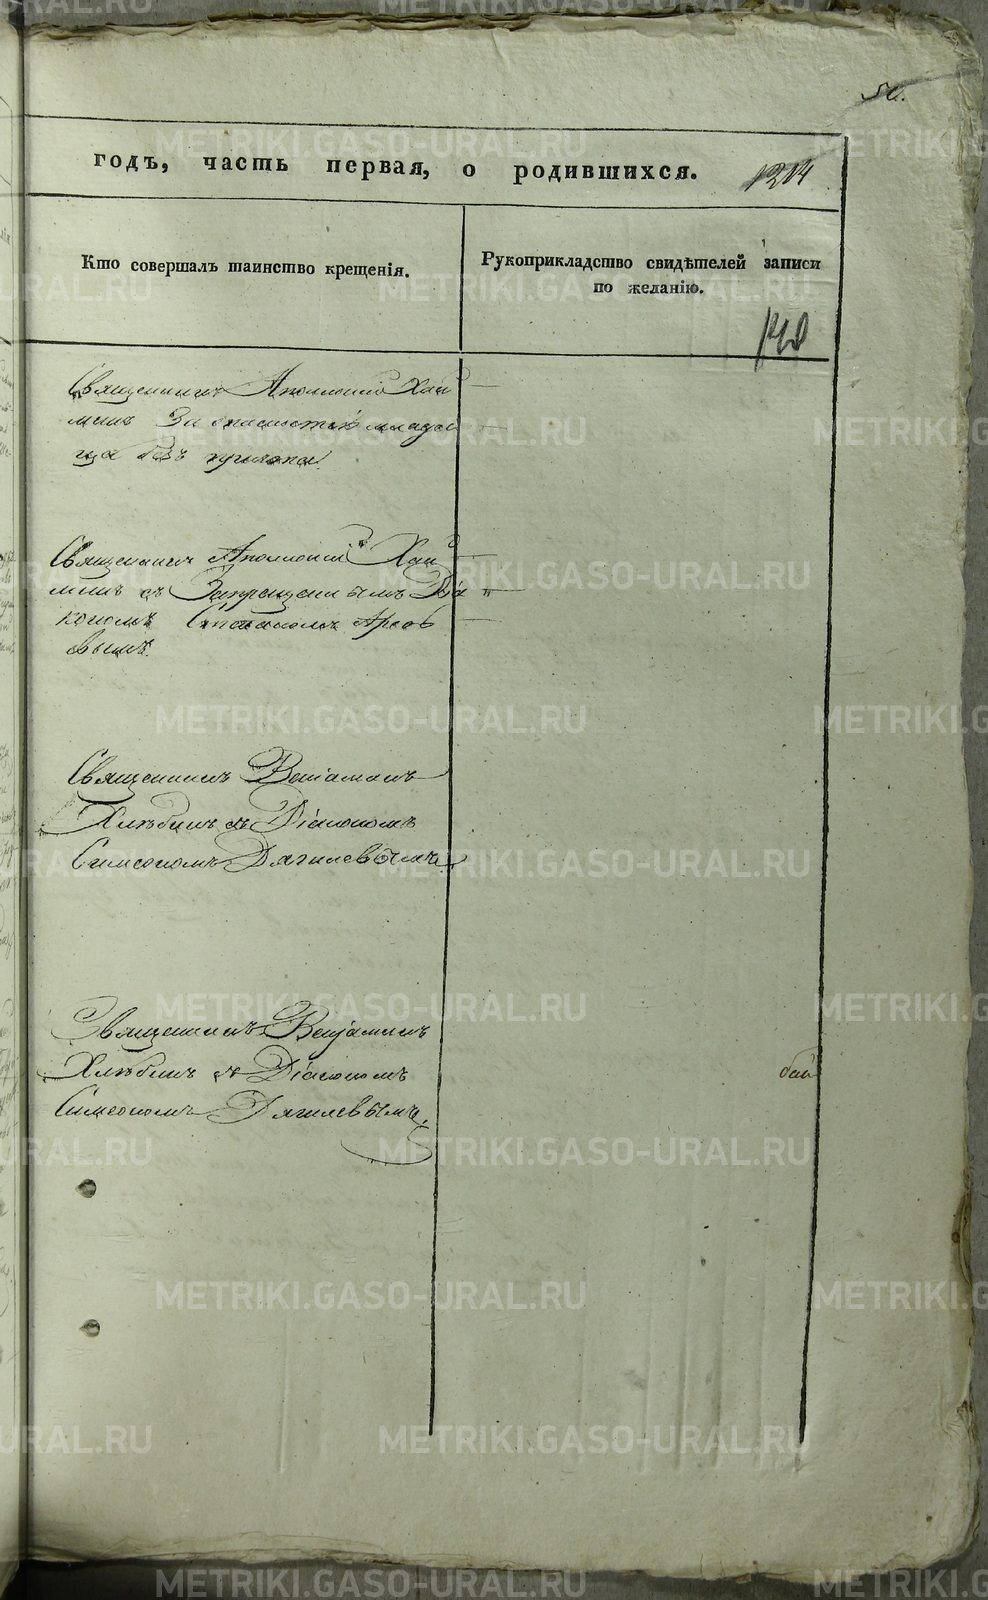 50.
годъ, часть первая, о родившихся. 1214
Кто совершалъ таинство крещенія.
Рукоприкладство свидѣтелей записи
по желанію.
140
Священникъ Аполлоній Хан
минъ За опасностію младен
ца безъ причта
Священникъ Аполлоній Хан
минъ съ Запрещеннымъ Діа
кономъ Стефаномъ Арефь
вымъ.
Священникъ Веніаминъ
Хлѣбинъ съ Діакономъ
Симеономъ Дягилевымъ
Священникъ Веніаминъ
Хлѣбинъ съ Діакономъ
Симеономъ Дягилевымъ.
METRIKI.GASO-URAL.RU